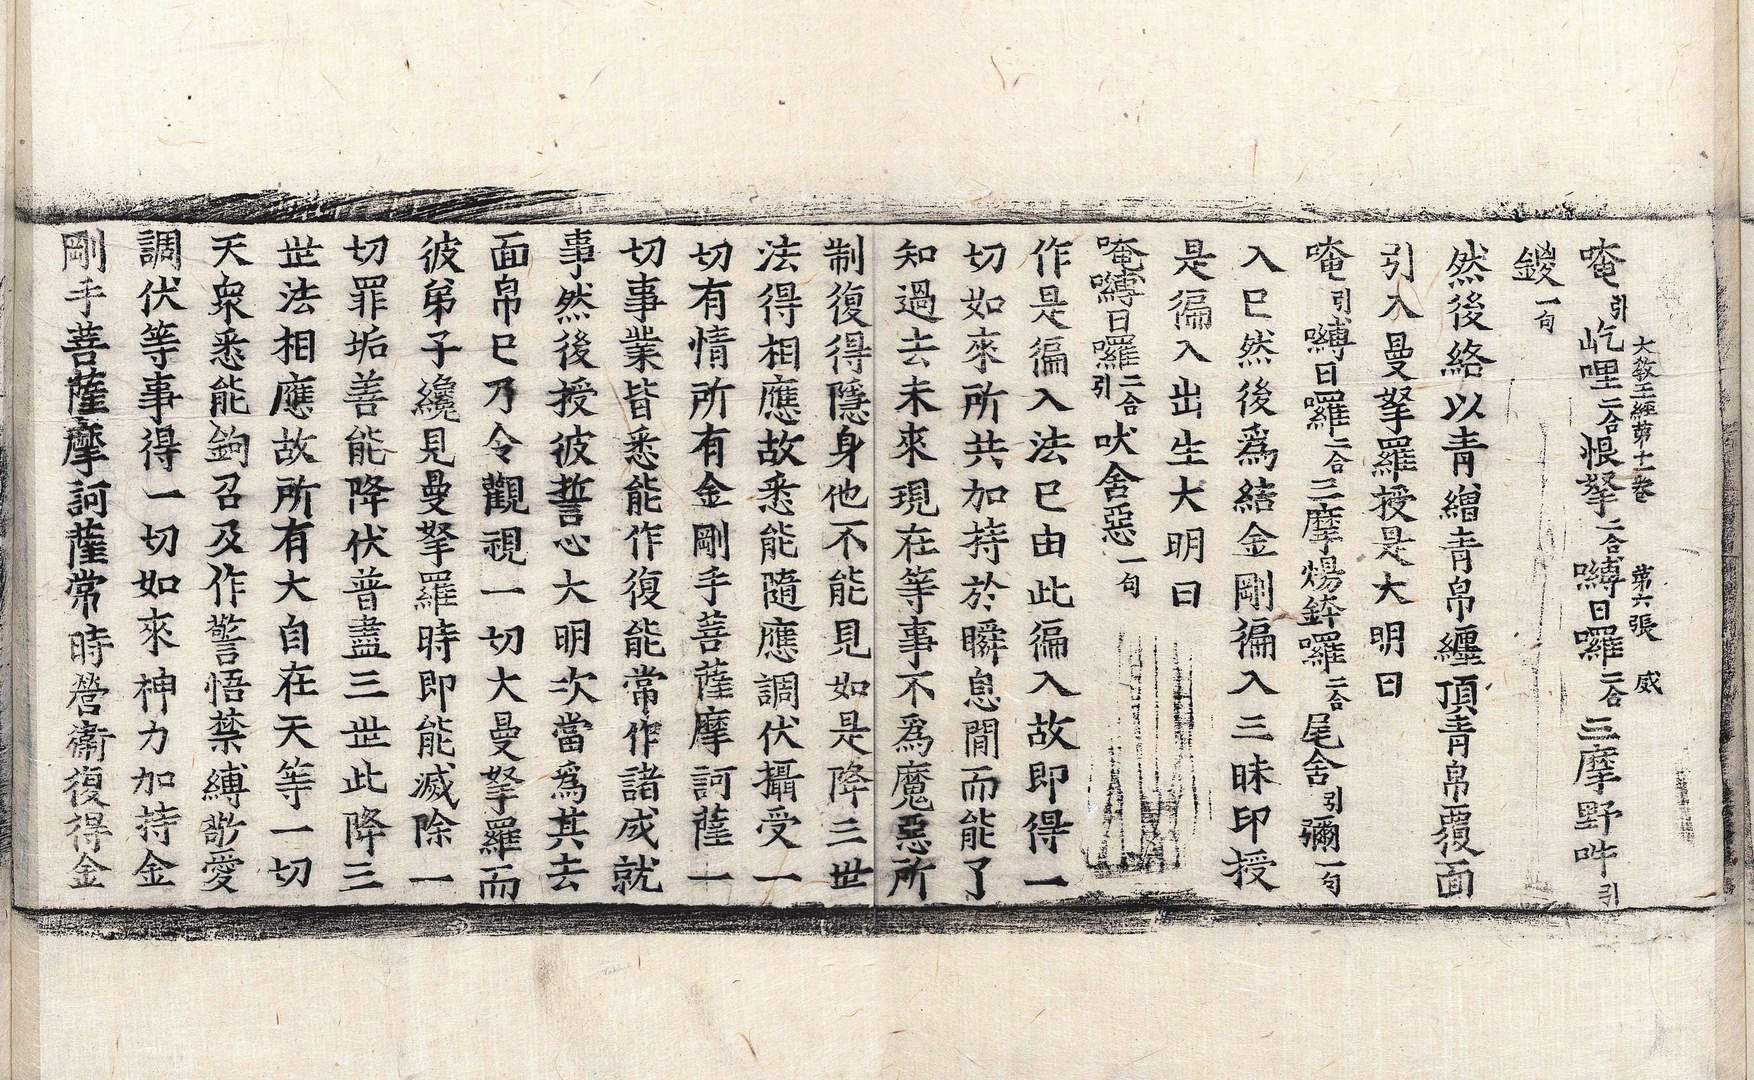 大教王經第十一卷 第六張 威
唵引屹哩二合恨拏二合嚩日囉二合三摩野吽引
鑁一句
然後絡以青繒青帛纏頂青帛覆面
引入曼拏羅授是大明曰
唵引嚩日囉二合三摩煬鉢囉二合尾舍引彌一句
入已然後爲結金剛徧入三昧印授
是徧入出生大明曰
唵嚩日囉二合引吠舍惡一句
作是徧入法已由此徧入故即得一
切如來所共加持於瞬息間而能了
知過去未來現在等事不爲魔惡所
制復得隱身他不能見如是降三世
法得相應故悉能隨應調伏攝受一
切有情所有金剛手菩薩摩訶薩一
切事業皆悉能作復能常作諸成就
事然後授彼誓心大明次當爲其去
面帛已乃令觀視一切大曼拏羅而
彼弟子纔見曼拏羅時即能滅除一
切罪垢善能降伏普盡三世此降三
世法相應故所有大自在天等一切
天衆悉能鉤召及作警悟禁縛敬愛
調伏等事得一切如來神力加持金
剛手菩薩摩訶薩常時營衞復得金